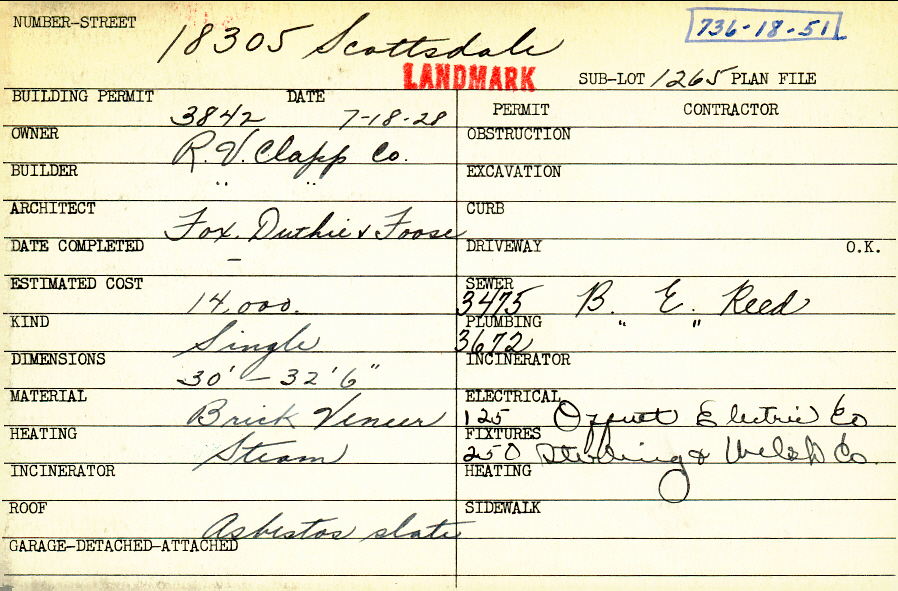 NUMBER-STREET 18305 Scottsdale 736-18-51
LANDMARK SUB-LOT 1265 PLAN FILE
BUILDING PERMIT 3842 DATE 7-18-28
PERMIT CONTRACTOR
OWNER R.V. Clapp Co.
OBSTRUCTION
BUILDER " "
EXCAVATION
ARCHITECT Fox, Duthie & Foose
CURB
DATE COMPLETED –
DRIVEWAY O.K.
ESTIMATED COST 14,000.
SEWER 3475 B. E. Reed
KIND Single
PLUMBING 3672 " "
DIMENSIONS 30' – 32'6"
INCINERATOR
MATERIAL Brick Veneer
ELECTRICAL 125 Electric Co
HEATING Steam
FIXTURES 250 Sterling & Welch Co.
INCINERATOR
HEATING
ROOF Asbestos slate
SIDEWALK
GARAGE-DETACHED-ATTACHED